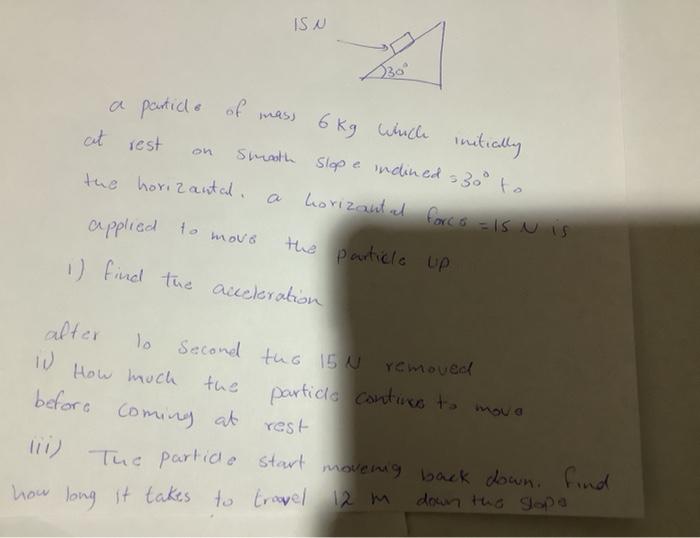 15 N
30°
a particle of mass 6 Kg which initially
at rest on smooth slope inclined = 30° to
the horizantal. a horizantal force = 15 N is
applied to move the particle up
i) find the acceleration
after 10 second the 15 N removed
ii) How much the particle continos to move
before coming at rest
iii) The particle start movenig back down. find
how long it takes to travel 12 m down the slope